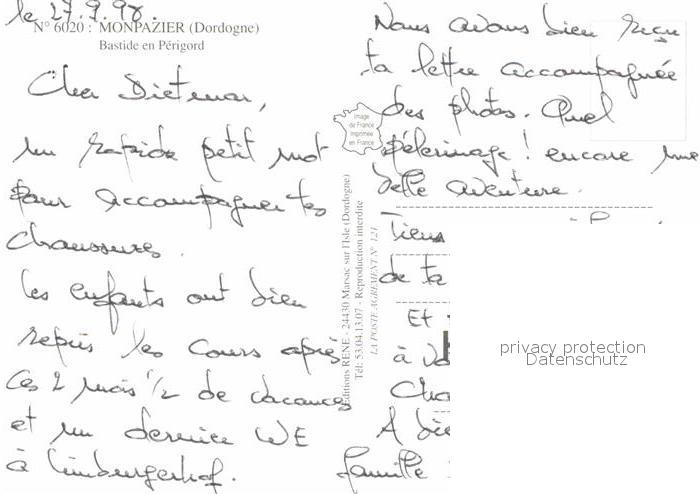 le 27.9.98.
N° 6020 : MONPAZIER (Dordogne)
Bastide en Périgord
Cher Dietmar,
un rapide petit mot
pour accompagner tes
chaussures.
les enfants ont bien
repris les cours après
ces 2 mois 1/2 de vacances
et un dernier WE
à Limburgerhof.
Image
de France
Imprimée
en France
Editions RENE - 24430 Marsac sur l'Isle (Dordogne)
Tél: 53.04.13.07 - Reproduction interdite
LA POSTE AGREMENT N° 121
Nous avons bien reçu
ta lettre accompagnée
des photos. Quel
pélerinage ! encore une
belle aventure.
Tiens
de ta
Et
à
A bie
famille
privacy protection
Datenschutz